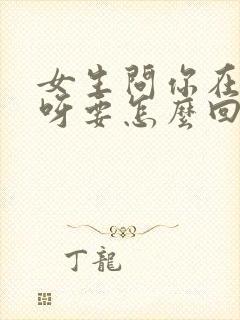 女生問你在
呀要怎麼回
丁龍